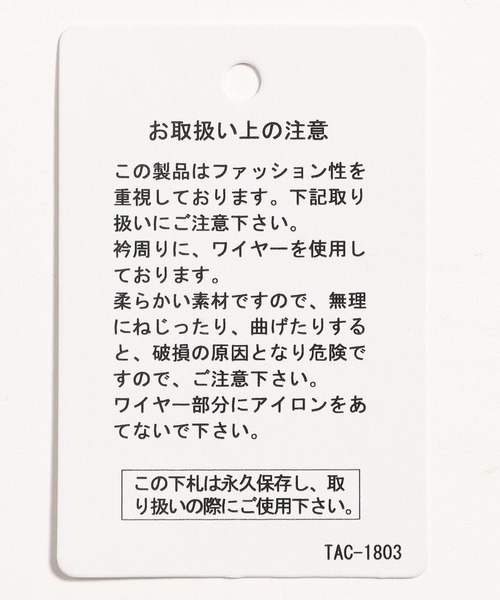 お取扱い上の注意
この製品はファッション性を
重視しております。下記取り
扱いにご注意下さい。
衿周りに、ワイヤーを使用し
ております。
柔らかい素材ですので、無理
にねじったり、曲げたりする
と、破損の原因となり危険で
すので、ご注意下さい。
ワイヤー部分にアイロンをあ
てないで下さい。
この下札は永久保存し、取
り扱いの際にご使用下さい。
TAC-1803